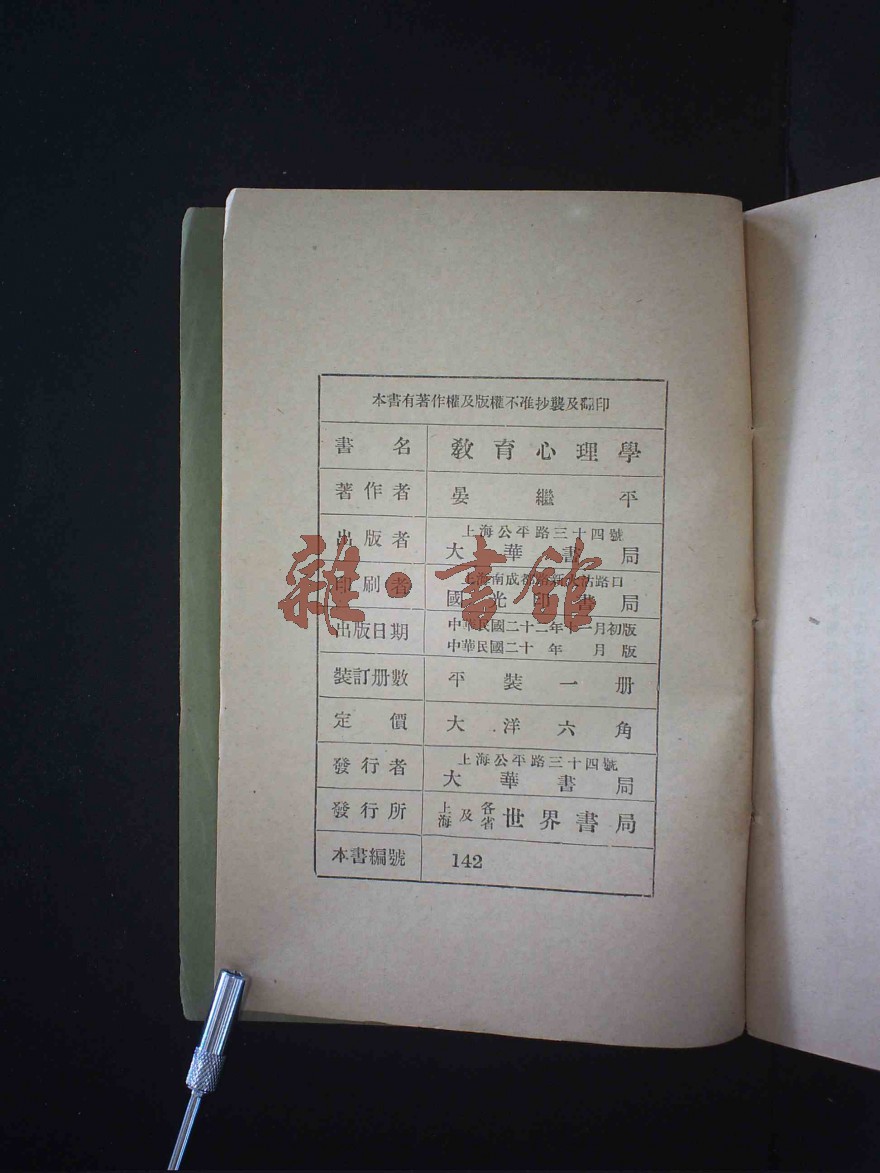 本書有著作權及版權不准抄襲及翻印
書名 教育心理學
著作者 晏繼平
出版者 上海公平路三十四號
大華書局
印刷者 上海南成都路新大沽路口
國光印書局
出版日期 中華民國二十二年十一月初版
中華民國二十 年 月 版
裝訂册數 平裝一册
定價 大洋六角
發行者 上海公平路三十四號
大華書局
發行所 上海及各省世界書局
本書編號 142
雜·書館